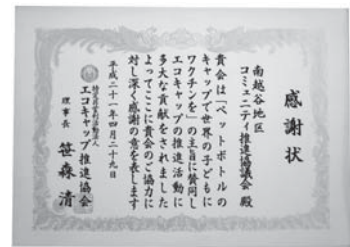 感謝状
南越谷地区
コミュニティ推進協議会 殿
貴会は「ペットボトルの
キャップで世界の子どもに
ワクチンを」の主旨に賛同し
エコキャップの推進活動に
多大な貢献をされました
よってここに貴会のご協力に
対し深く感謝の意を表します
平成二十一年四月二十九日
特定非営利活動法人
エコキャップ推進協会
理事長 笹森清